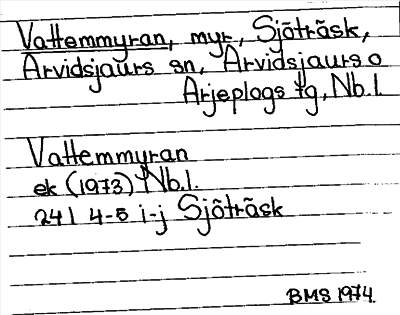 Vattemmyran, myr, Sjöträsk,
Arvidsjaurs sn, Arvidsjaurs o
Arjeplogs tg, Nb.l.
Vattemmyran
ek (1973) Nb.l.
241 4-5 i-j Sjöträsk
BMS 1974